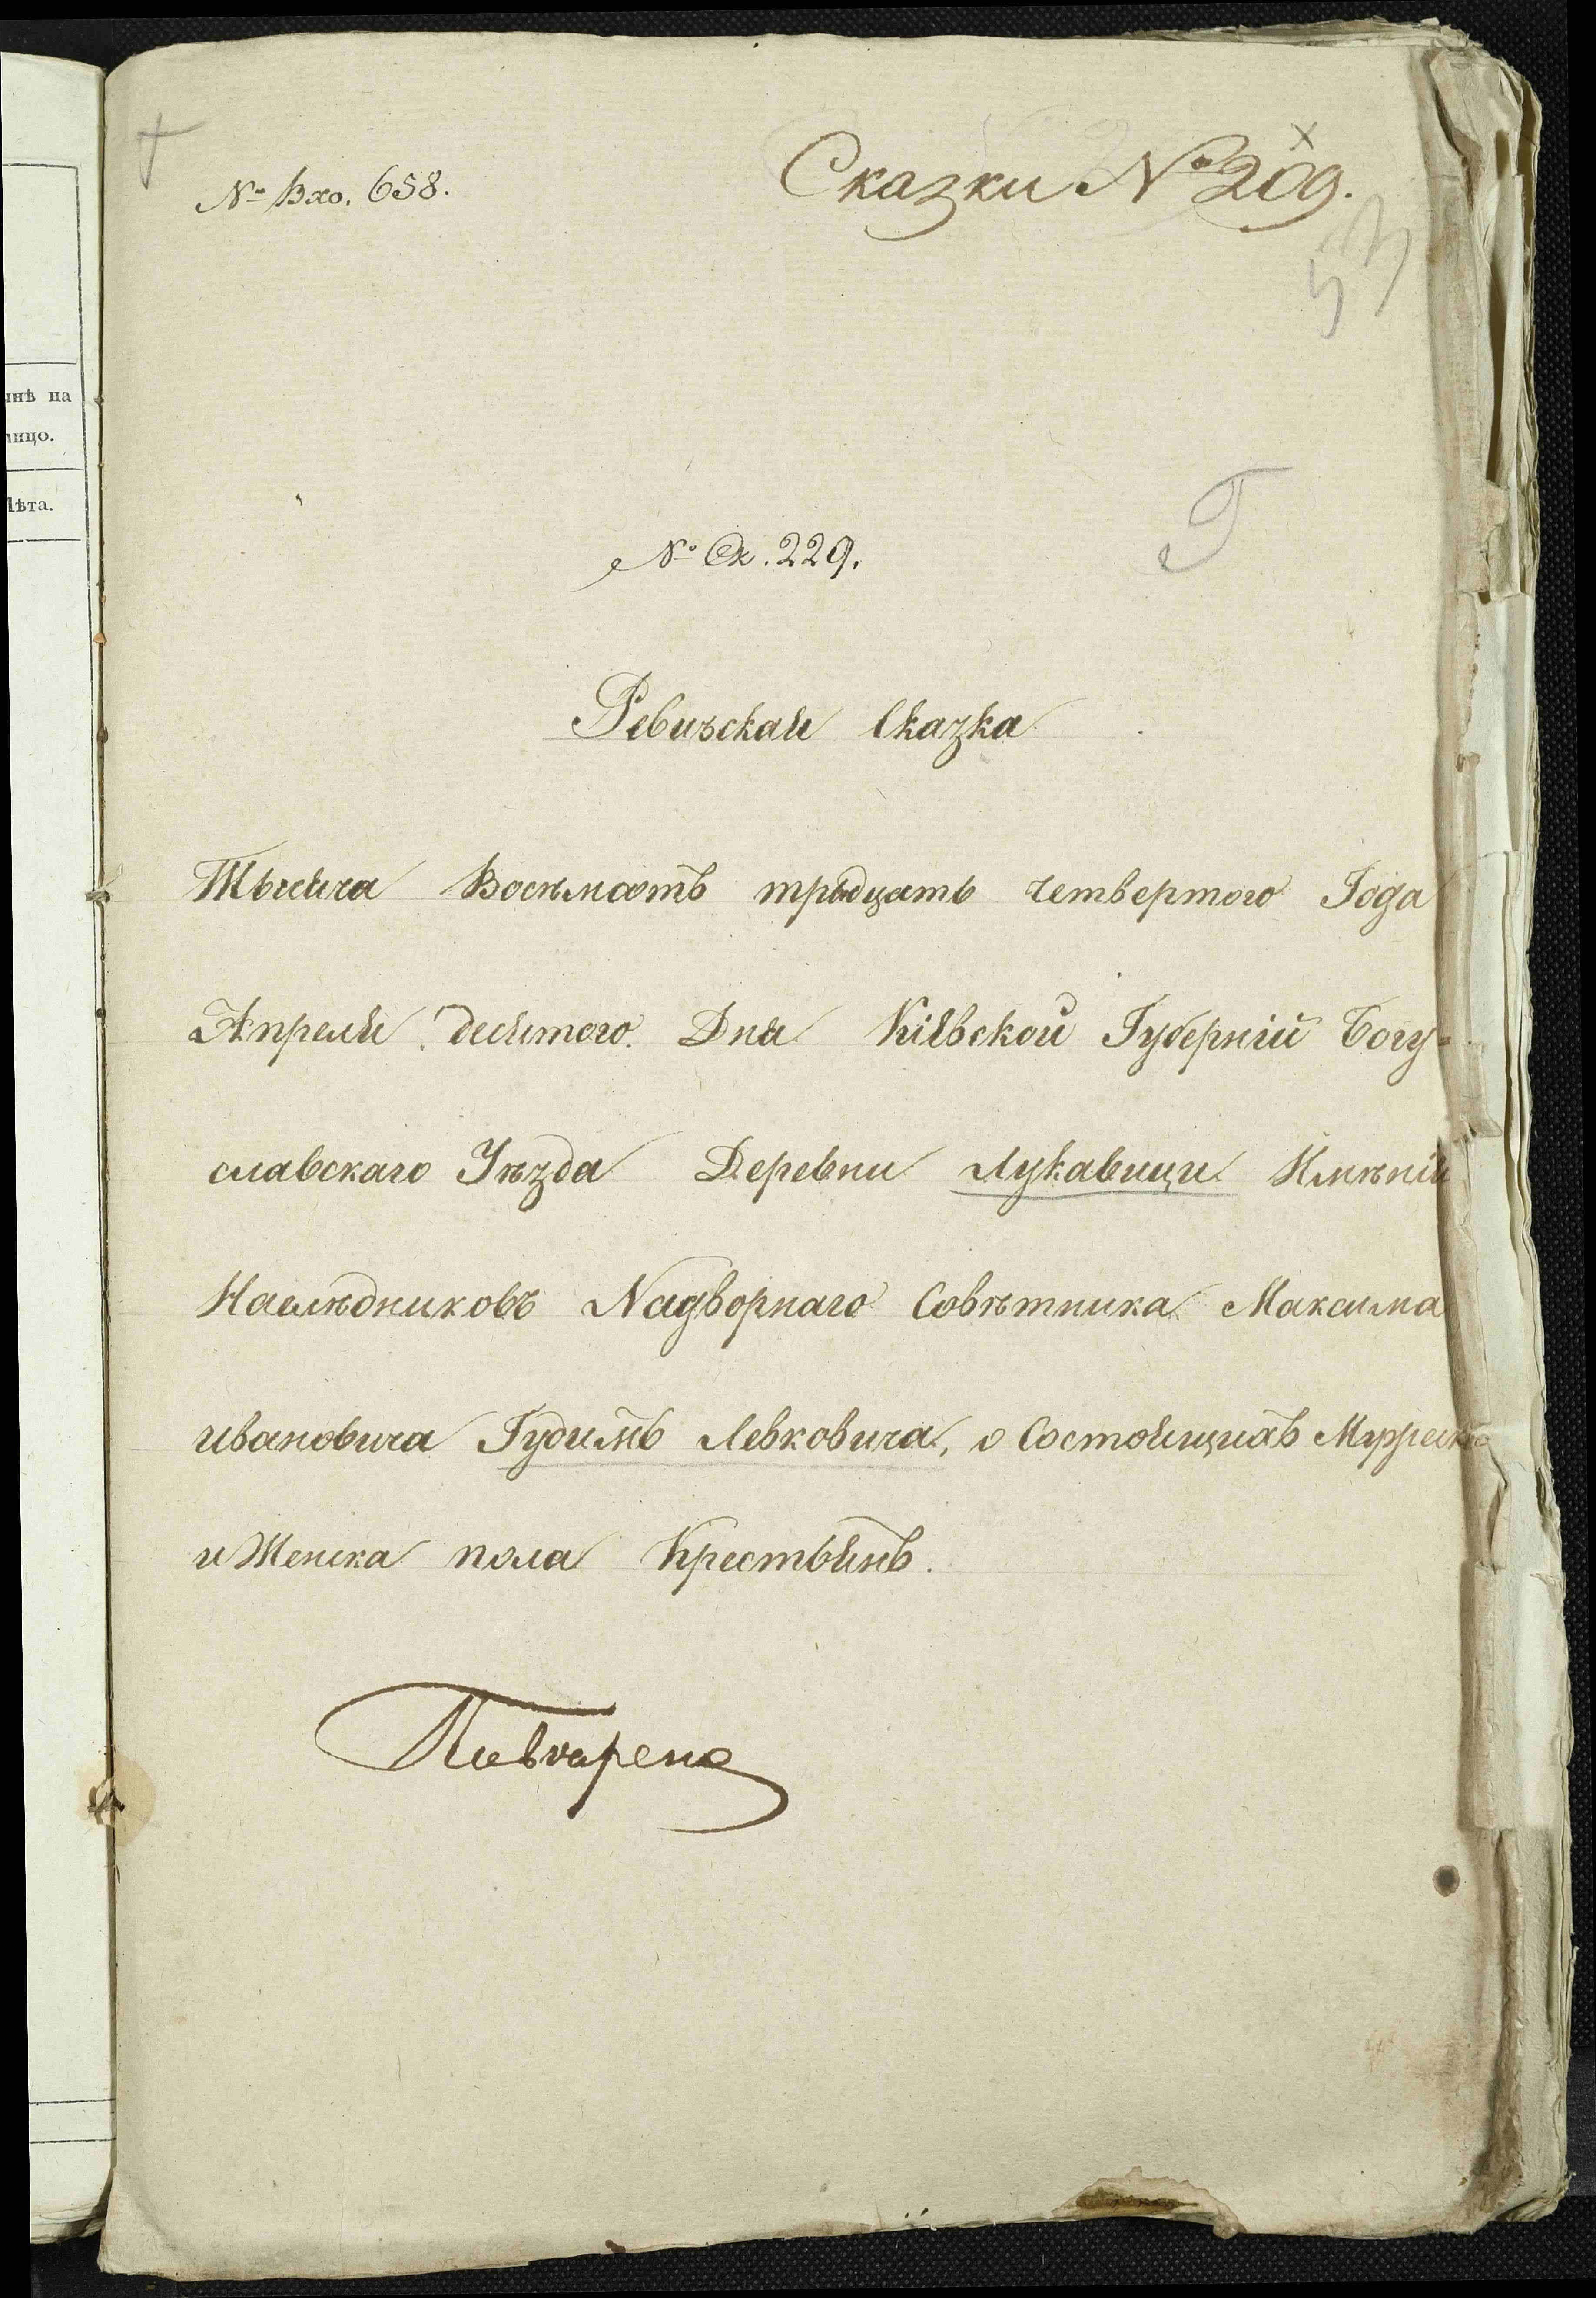 № Вхо. 658.
Сказки № 209.
573
инѣ на
лицо.
Лѣта.
№ Ск. 229.
Ревизская Сказка
Тысяча Восѣмсотъ трыдцать четвертого Года
Апреля десятого Дня Кіевской Губерніи Богу-
славскаго Уѣзда Деревни Лукавици Имѣнія
Наслѣдниковъ Надворнаго Совѣтника Максима
ивановича Гудимъ Левковича, о Состоящихъ Мужеска
и Женска пола Крестьянъ.